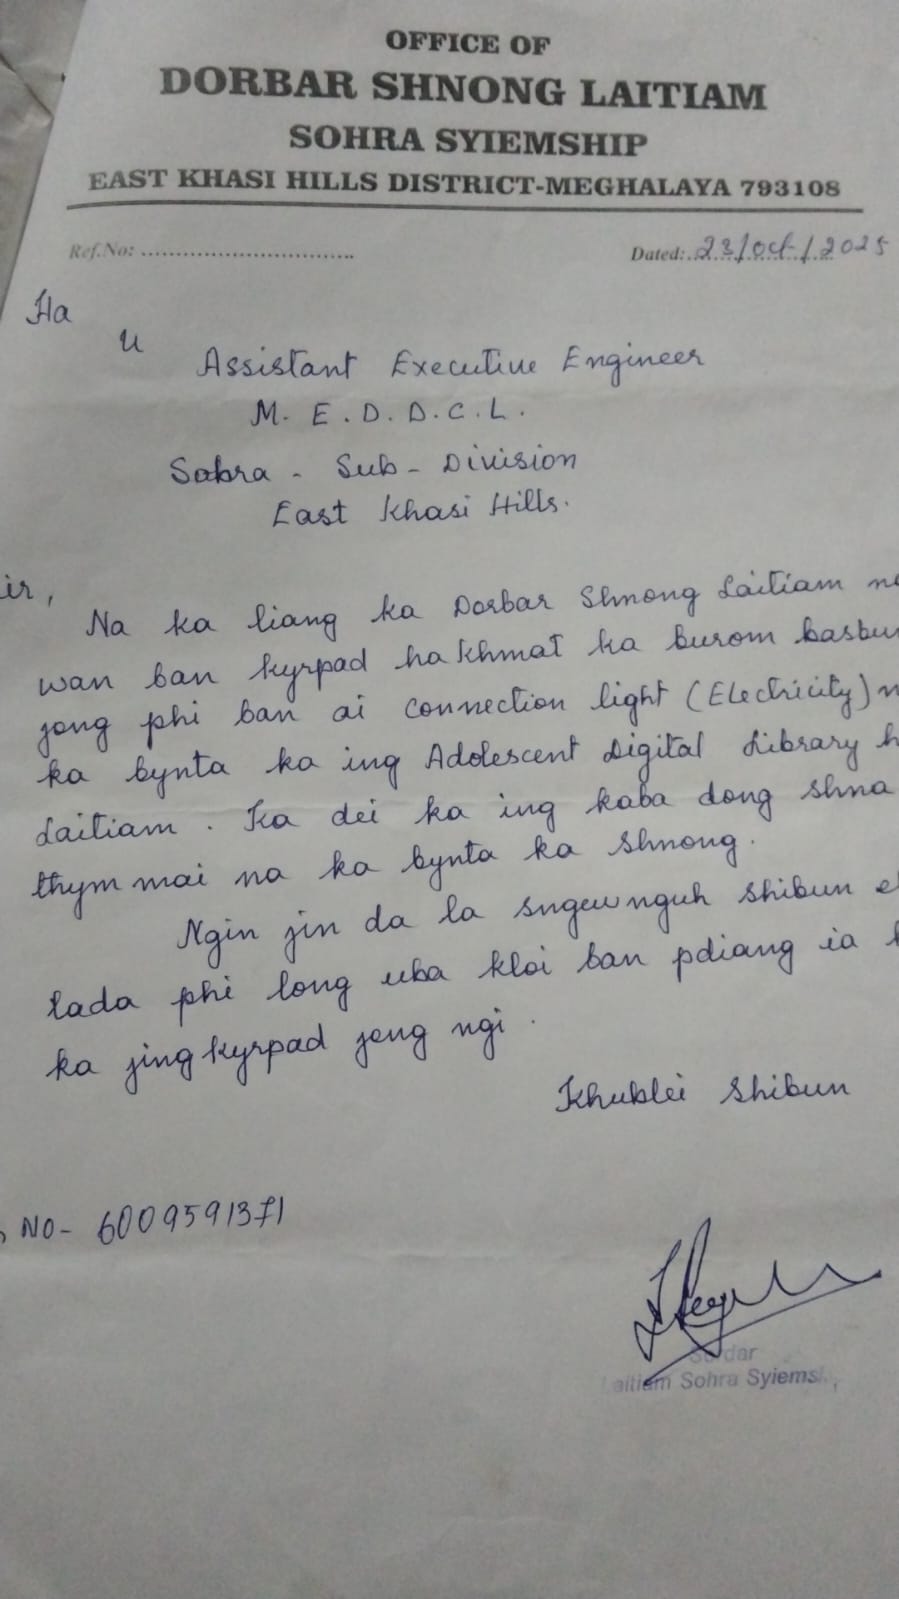 OFFICE OF
DORBAR SHNONG LAITIAM
SOHRA SYIEMSHIP
EAST KHASI HILLS DISTRICT-MEGHALAYA 793108
Ref.No: ................................ Dated: 23/Oct/2025
Ha
U
Assistant Executive Engineer
M. E. D. D. C. L.
Sohra - Sub - Division
East Khasi Hills.
ir,
Na ka liang ka Dorbar Shnong Laitiam
wan ban kyrpad ha khmat ka burom basbun
jong phi ban ai connection light (Electricity)
ka bynta ka ing Adolescent Digital Library
Laitiam. Ka dei ka ing kaba dong shna
thymmai na ka bynta ka Shnong.
Ngin jin da la sngewnguh shibun
lada phi long uba kloi ban pdiang ia
ka jingkyrpad jong ngi.
Khublei Shibun
No- 6009591371
Sordar
Laitiam Sohra Syiems